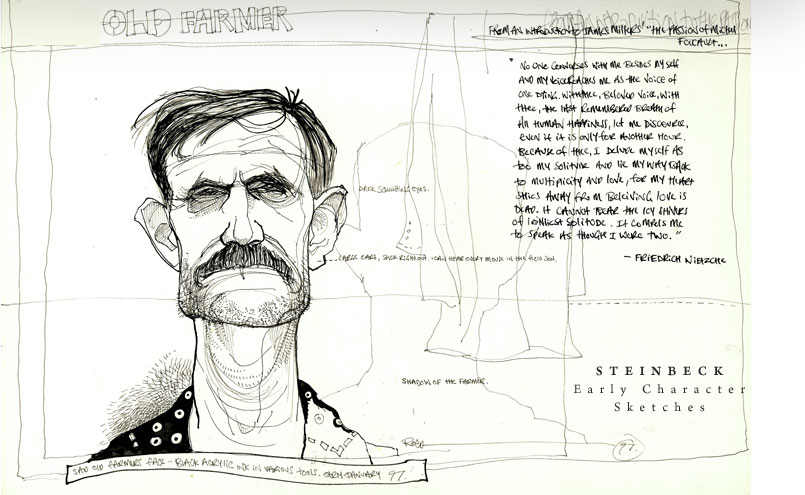 OLD FARMER
FROM AN INTRODUCTION TO JAMES MILLERS' "THE PASSION OF MICHEL
FOUCAULT...
" NO ONE CONVERSES WITH ME BESIDES MYSELF
AND MY VOICE REACHES ME AS THE VOICE OF
ONE DYING. WITH THEE, BELOVED VOICE, WITH
THEE, THE LAST REMEMBERED BREATH OF
ALL HUMAN HAPPINESS, LET ME DISCOURSE,
EVEN IF IT IS ONLY FOR ANOTHER HOUR.
BECAUSE OF THEE, I DELUDE MYSELF AS
TO MY SOLITUDE AND LIE MY WAY BACK
TO MULTIPLICITY AND LOVE, FOR MY HEART
SHIES AWAY FROM BELIEVING LOVE IS
DEAD. IT CANNOT BEAR THE ICY SHIVERS
OF LONLIEST SOLITUDE. IT COMPELS ME
TO SPEAK AS THOUGH I WERE TWO."
— FRIEDRICH NIETZCHE
DARK SQUINTING EYES.
LARGE EARS, STICK RIGHT OUT. I CAN HEAR EVERY MOUSE IN THIS FIELD SON.
SHADOW OF THE FARMER.
STEINBECK
Early Character
Sketches
97.
SAD OLD FARMERS FACE - BLACK ACRYLIC INK IN VARIOUS TOOLS. EARLY JANUARY 97.